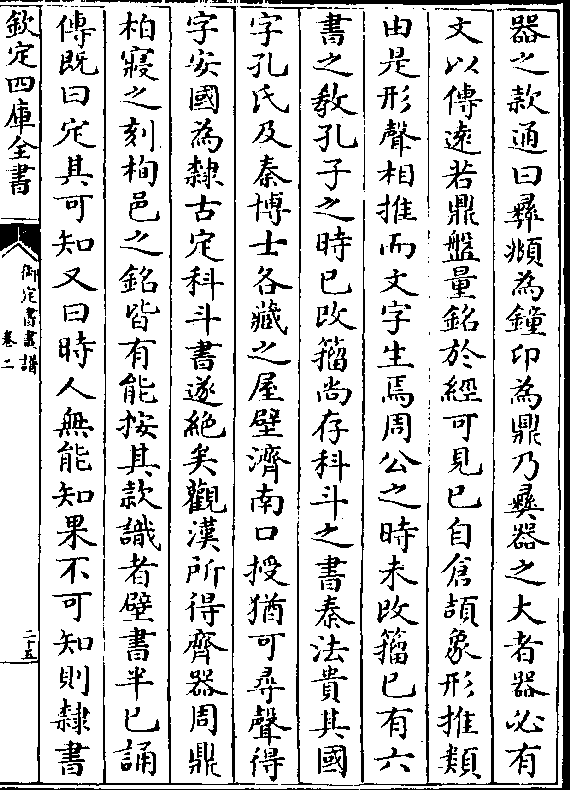 器之款通曰彛㶹為鐘卬為鼎乃彛器之大者器必有
文以傳逺若鼎盤量銘於經可見已自倉頡象形推類
由是形聲相推而文字生焉周公之時未改籀已有六
書之教孔子之時已改籀尚存科斗之書秦法貴其國
字孔氏及秦博士各藏之屋壁濟南口授猶可尋聲得
字安國為隸古定科斗書遂絶矣觀漢所得齊器周鼎
柏寢之刻栒邑之銘皆有能按其款識者壁書半已誦
傳既曰定其可知又曰時人無能知果不可知則隸書
欽定四庫全書
御定書畫譜
卷二
二十五